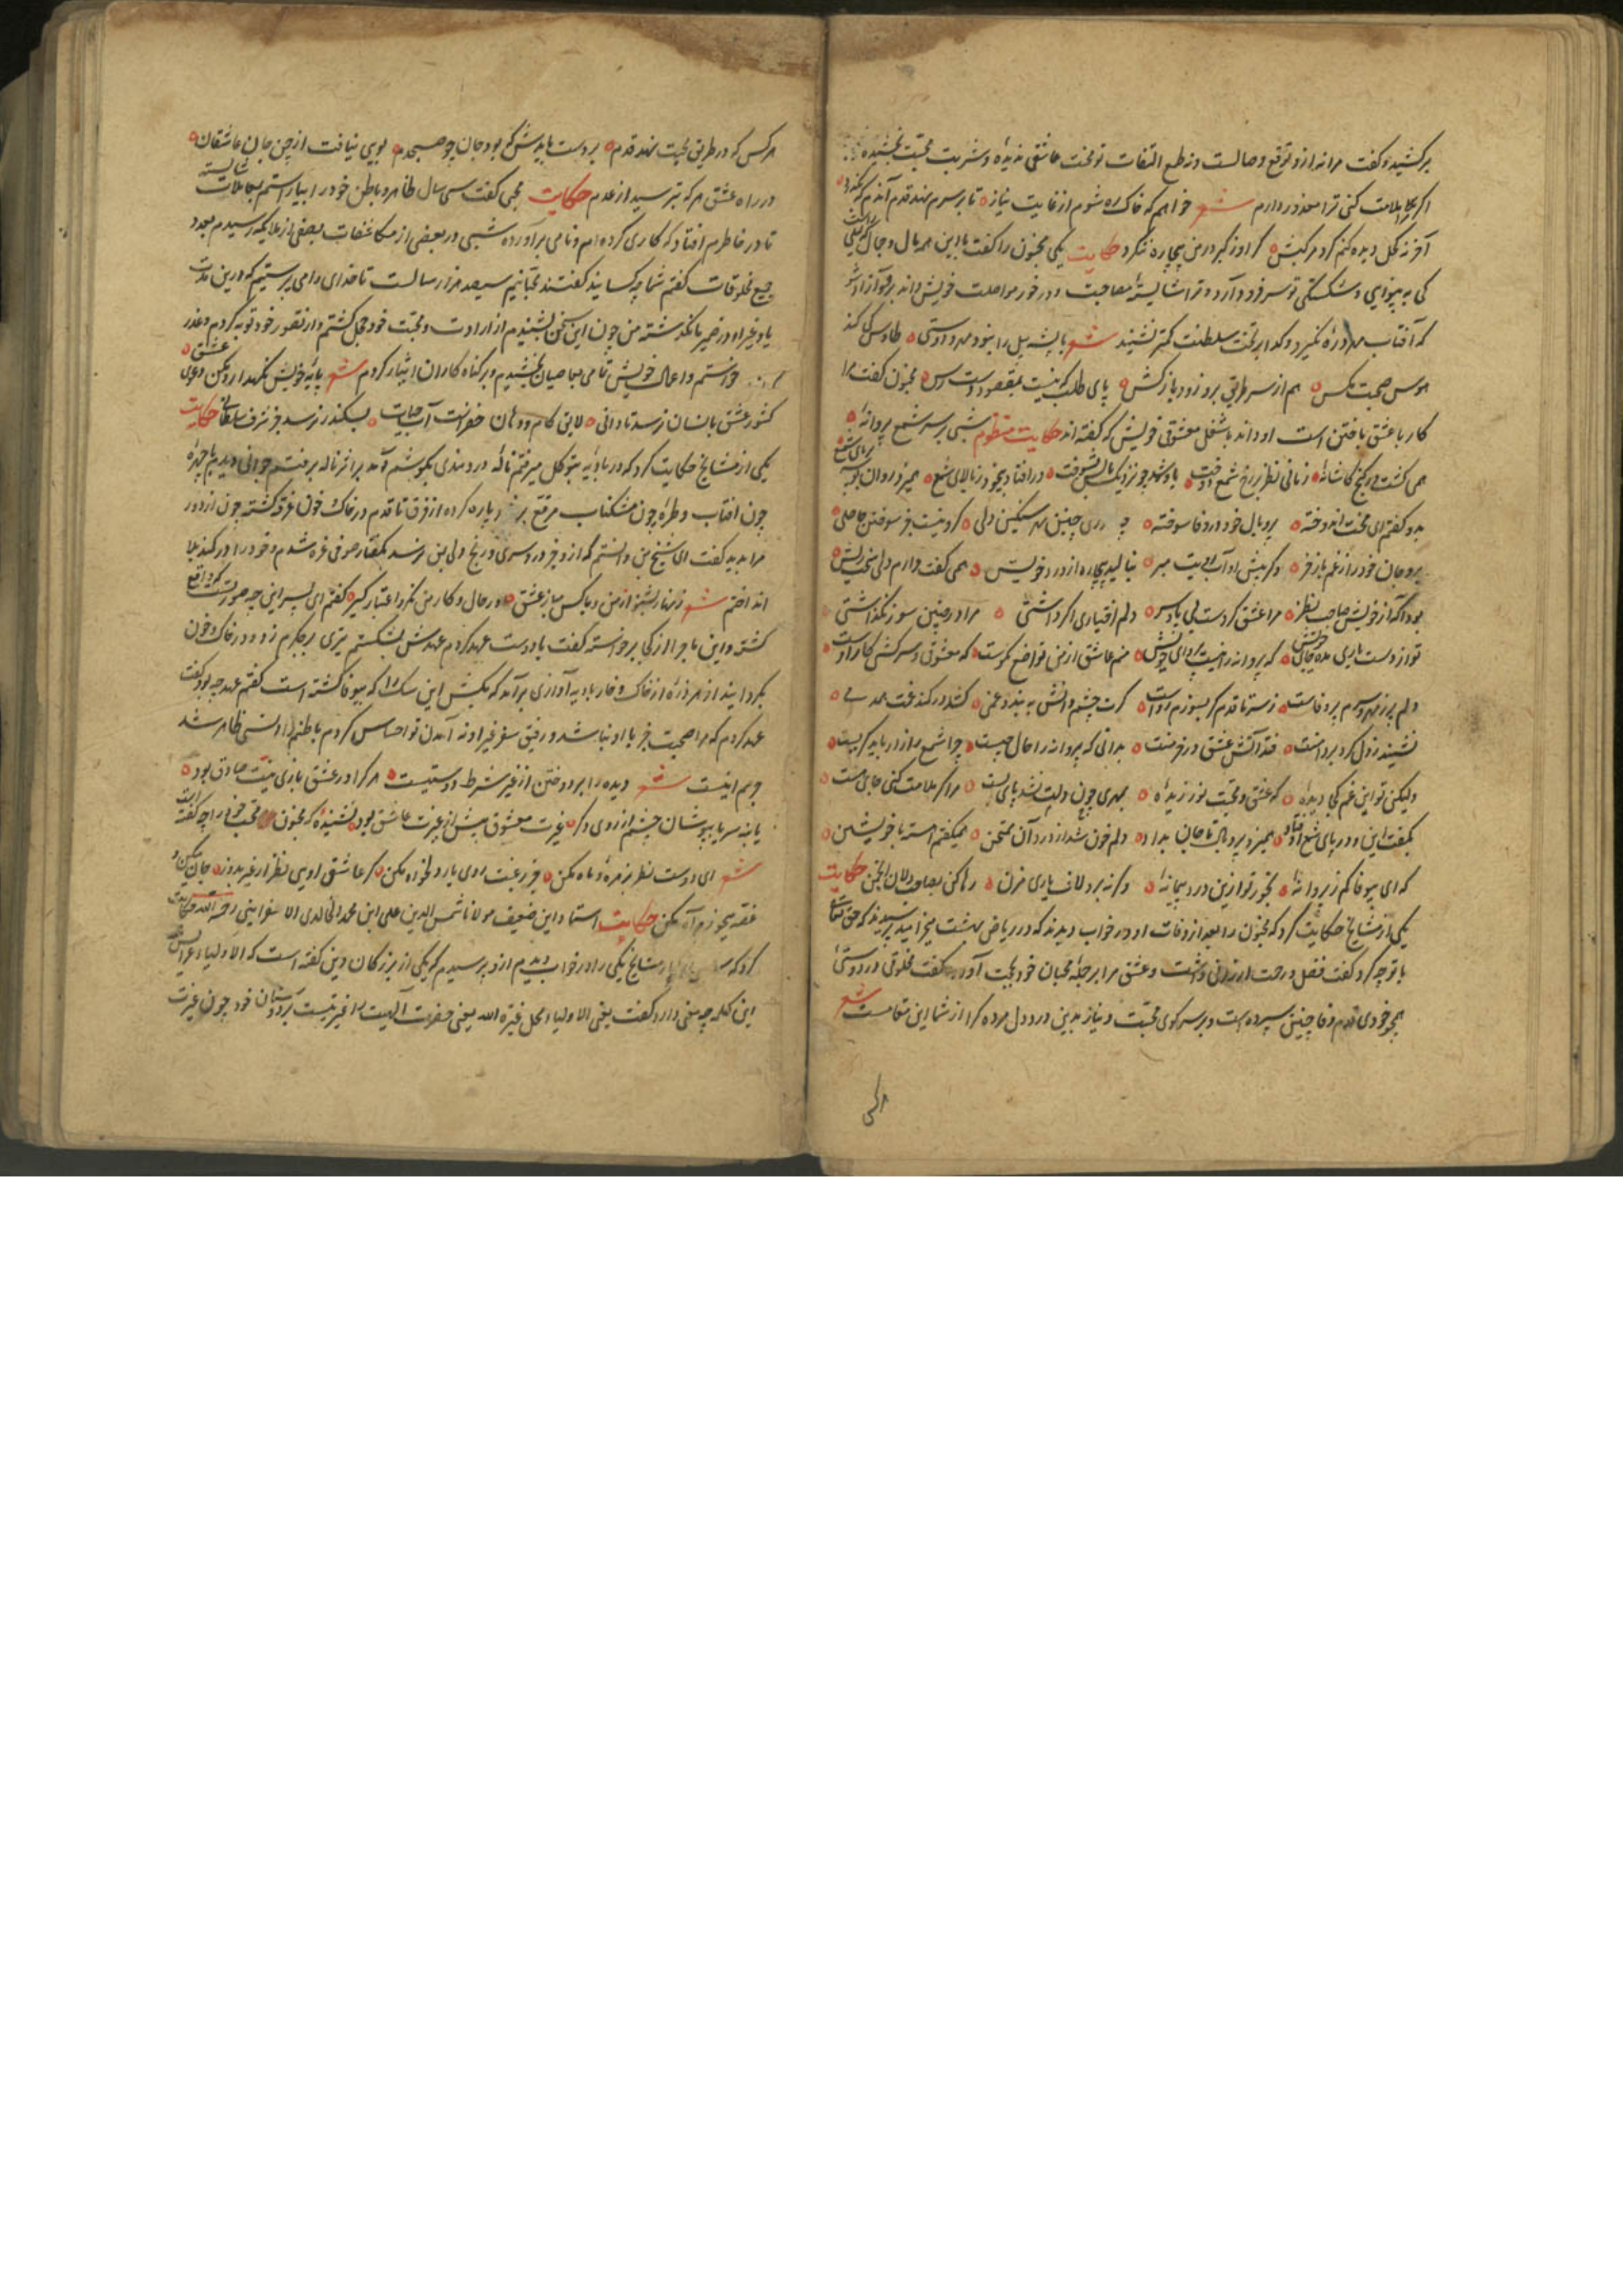 برکشید و کفت مرا نه ازو توقع وصالست و نه طمع التفات تو محنت عاشقی ندیدهٔ و شربت محبت نچشیدهٔ
اکر ملامت کنی ترا معذور دارم شعر خواهم که خاک ره شوم از غایت نیاز تا بر سرم نهد قدم آندم که بگذرد
آخر نه کحل دیده کنم کرد مرکبش کر او ز کبر در من بیچاره ننکرد حکایت یکی مجنون را کفت با این همه مال و جمال که لیلی راست
کی به بینوایی و شکستکی تو سر فرود آرد و ترا شایستهٔ مصاحبت و در خور مواصلت خویش داند برو آزاد شو
که آفتاب مهر ذره نکیرد و کدا بر تخت سلطنت کمتر نشیند شعر با پشه پیل را نبود مهر و دوستی طاوس کی کند
هوس صحبت مکس هم از سر طریق برو زود باز کش پای طلب که نیست بمقصود دسترس مجنون کفت مرا
کار با عشق باختن است او داند با شغل معشوقی خویش که کفته‌اند حکایت منظوم شبی بر سر شمع پروانهٔ
همی کشت در کنج کاشانهٔ زمانی نظر بر رخ شمع دوخت بادشد چو نزدیک بالش بسوخت در افتاد بیخود ز بالای شمع همیزد روان بوسه بر پای شمع
بدو کفتم ای محنت اندوخته پر و بال خود در وفا سوخته چه داری چنین مهر سنکین دلی کزو نیست جز سوختن حاصلی
برو جان خود را ز غم باز خر و کر پیش او آب رویت مبر بنالید بیچاره از درد خویش همی کفت دارم دلی سخت ریش
بود آکه از خویش صاحب نظر مرا عشق کردست بی پا و سر دلم اختیاری اکر داشتی مرا در چنین سوز نکذاشتی
تو از دست یاری مده جای خویش که پروانه را نیست پروای خویش منم عاشق از من تواضع نکوست که معشوقی و سرکشی کار اوست
دلم پر ز مهر و سرم پر وفاست ز سر تا قدم کر بسوزم رواست کرت چشم دانش به بندد غمی کشد در کمند غمت همدمی
نشیند ز دل کرد بر دامنت فتد آتش عشق در خرمنت بدانی که پروانه را حال چیست چرا شمع را زار باید کریست
ولیکن تو این غم کجا دیدهٔ که عشق و محبت نورزیدهٔ بمهری چون دلت نشد پای بست مرا کر ملامت کنی جای هست
بکفت این و در پای شمع اوفتاد همیزد پر و بال تا جان بداد دلم خون شد از درد آن ممتحن همیکفتم آهسته با خویشتن
که ای بیوفا کم ز پروانهٔ بخور تو ازین درد پیمانهٔ و کر نه برو لاف یاری مزن رها کن بصاحبدلان انجمن حکایت
یکی از مشایخ حکایت کرد که مجنون را بعد از وفات او در خواب دیدند که در ریاض بهشت میخرامید پرسیدند که حق تعالی
با تو چه کرد کفت فضل و رحمت ارزانی داشت و عشق مرا بر جملهٔ محبان خود بحجت آورد کفت مخلوقی در دوستی
همچو خودی قدم وفا چنین سپرده است و بر سر کوی محبت و نیاز بدین درد دل مرده کرا از شما این مقامست شعر
هر کس که در طریق محبت نهد قدم بر دست بایدش که بود جان چو صبحدم بویی نیافت از چمن جان عاشقان
در راه عشق هر که بترسید از عدم حکایت محبی کفت سی سال ظاهر و باطن خود را بیاراستم بمعاملات شایسته
تا در خاطرم افتاد که کاری کرده‌ام و نامی برآورده شبی در بعضی از مکاشفات ببعضی از ملایکه رسیدم بعدد
جمیع مخلوقات کفتم شما چه کسانید کفتند محبانیم سیصد هزار سالست تا خدای را می پرستیم که درین مدت
یاد غیر او در ضمیر ما نکذشته من چون این سخن بشنیدم از ارادت و محبت خود خجل کشتم و از تقصیر خود توبه کردم و عذر
خواستم و اعمال خویش تمامی بعاصیان بخشیدم و بر کناه کاران ایثار کردم شعر پایهٔ خویش نکهدار و مکن دعوی عشق
کشور عشق بانسان نرسد تا دانی لایق کام و دهان خضر است آب حیات بسکندر نرسد جز شرف سلطانی حکایت
یکی از مشایخ حکایت کرد که در بادیه بتوکل میرفتم نالهٔ دردمندی بکوشم آمد بر اثر ناله برفتم جوانی دیدم با چهرهٔ
چون افتاب و طرهٔ چون مشکناب مرقع پاره کرده از فرق تا قدم در خاک و خون غرقه کشته چون از دور
مرا بدید کفت ای شیخ من دانستم که ازو جز درد سری و رنج دلی بمن نرسد بکفتار صوفی غره شدم و خود را در کمند بلا
انداختم شعر زنهار بشنو از من و با کس مباز عشق در حال و کار من نکر و اعتبار کیر کفتم ای پسر این چه صورتست که واقع
کشته و این ماجرا از کی برخواسته کفت با دوست عهد کردم عهدش بشکستم تیری بر جکرم زد و در خاک و خون
بکردانید از هر ذرهٔ از خاک و خار بادیه آوازی برآمد که بکش این سک را که بیوفا کشته است کفتم عهد چه بود کفت
عهد کردم که مرا صحبت جز با او نباشد و رفیق سفر غیر او نه آمدن تو احساس کردم باطنم را انسی ظاهر شد
جرمم اینست شعر دیده را بردوختن از غیر شرط دوستیست هر کرا در عشق بازی نیت صادق بود
یا بنه سر یا بپوشان چشم از روی دکر غیرت معشوق بیش از غیرت عاشق بود نشنیدهٔ که مجنون محب خود را چه کفته است
شعر ای دوست نظر بزهره و ماه مکن جز رغبت روی یار دلخواه مکن کر عاشق اویی نظر از غیر بدوز جان میکن و
غصه میخور و آه مکن حکایت استاد این ضعیف مولانا شمس الدین علی ابن محمد الخالدی الاسفراینی رحمه الله حکایت
کرد که مشایخ یکی را در خواب دیدم ازو پرسیدم که یکی از بزرکان دین کفته است که الاولیاء عرایس الله
این کلمه چه معنی دارد کفت یعنی الاولیاء محل غیرة الله یعنی حضرت الهیت را غیرتیست بر دوستان خود چون غیرت